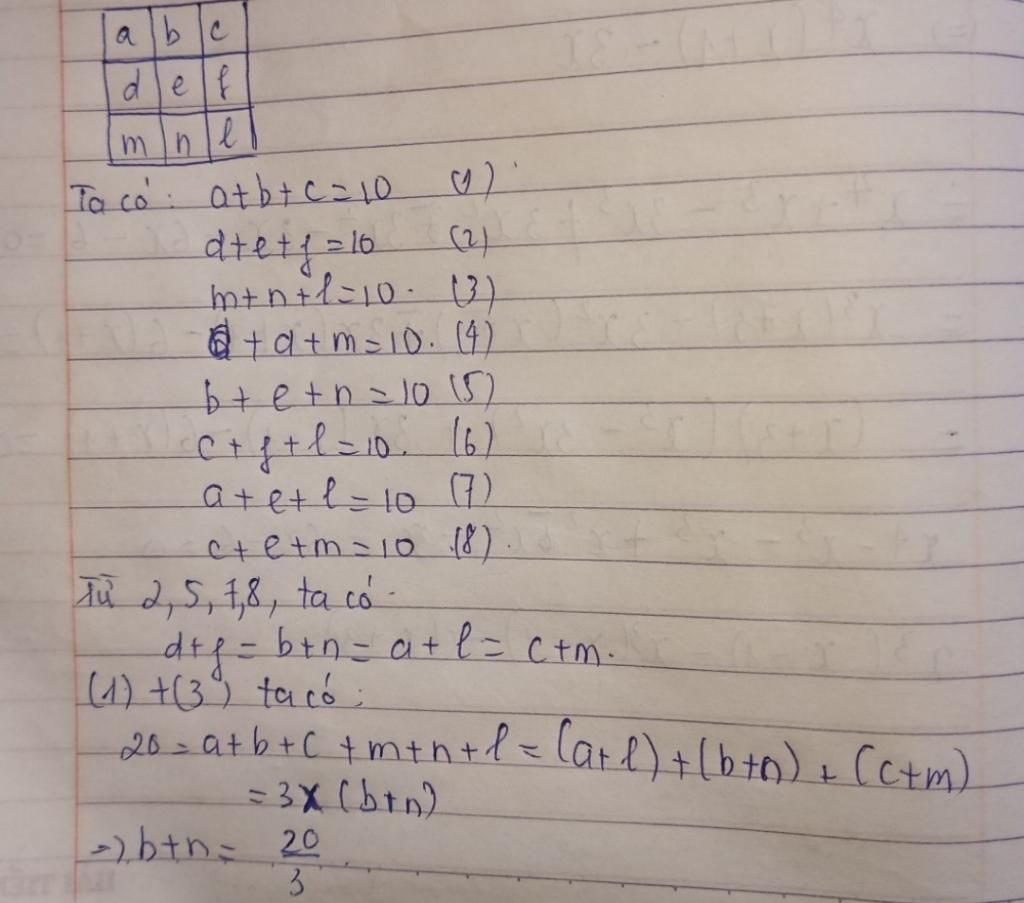 a b c
d e f
m n l
Ta có: a+b+c=10 (1)
d+e+f=10 (2)
m+n+l=10. (3)
+d+m=10. (4)
b+e+n=10 (5)
c+f+l=10. (6)
a+e+l=10 (7)
c+e+m=10 (8).
Từ 2,5,7,8, ta có
d+f=b+n=a+l=c+m.
(1)+(3) ta có:
20=a+b+c+m+n+l=(a+l)+(b+n)+(c+m)
=3x(b+n)
=> b+n= 20/3.